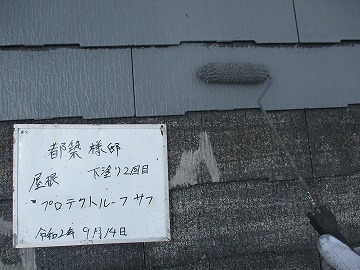 都築様邸
屋根 下塗り2回目
・プロテクトルーフサフ
令和2年9月14日